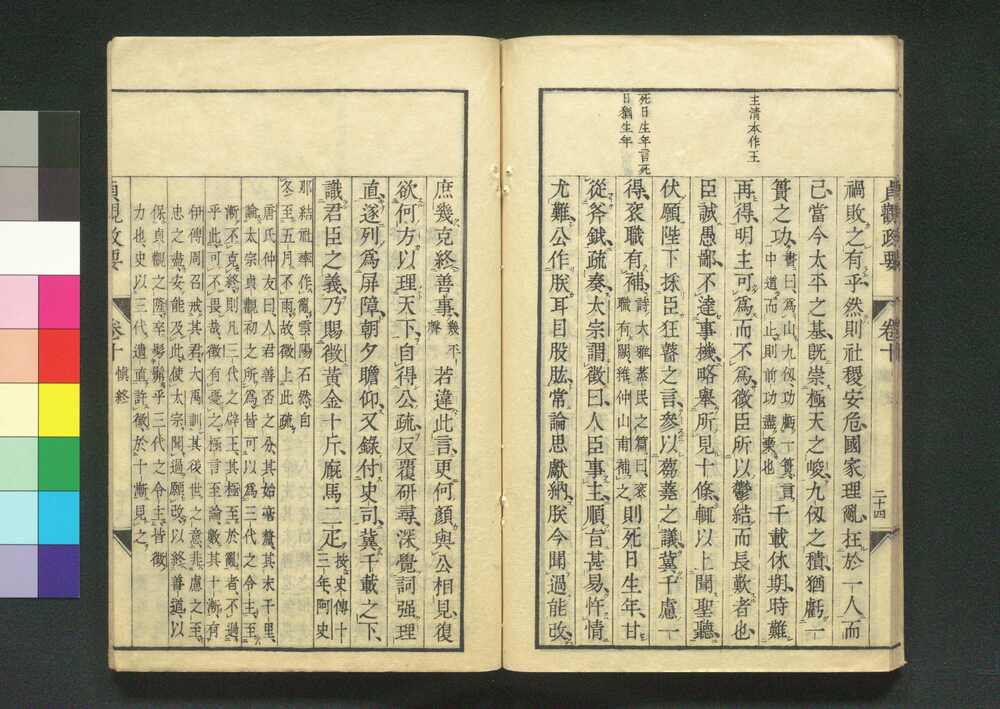 主清本作王
死日生年言死
日猶生年
貞觀政要 卷十 二十四
禍敗之有乎然則社稷安危國家理亂在於一人而
已當今太平之基既崇極天之峻九仞之積猶虧一
簣之功書曰爲山九仞功虧一簣言
中道而止則前功盡棄也千載休期時難
再得明主可爲而不爲微臣所以鬱結而長歎者也
臣誠愚鄙不達事機略舉所見十條輒以上聞聖聽
伏願陛下採臣狂瞽之言參以芻蕘之議冀千慮一
得袞職有補詩大雅蒸民之篇曰袞
職有闕維仲山甫補之則死日生年甘
從斧鉞疏奏太宗謂徵曰人臣事主順旨甚易忤情
尤難公作朕耳目股肱常論思獻納朕今聞過能改
庶幾克終善事幾平
聲若違此言更何顏與公相見復
欲何方以理天下自得公疏反覆研尋深覺詞强理
直遂列爲屏障朝夕瞻仰又錄付史司冀千載之下
識君臣之義乃賜徵黃金十斤廐馬二疋按史傳十
三年阿史
那結社率作亂雲陽石然自
冬至五月不雨故徵上此疏
唐氏仲友曰人君善否之分其始毫釐其末千里
論太宗貞觀初之所爲皆可以爲三代之令主至
漸不克終則凡三代之辟王其極至於亂者不過
乎此可不畏哉徵有憂之極言至論數其十漸有
伊傅周召戒其君大禹訓其後世之意非慮之至
忠之盡安能及此使太宗聞過願改以終善道以
保貞觀之隆卒髣髴乎三代之令主皆徵
力也史以三代遺直許徵於十漸見之
貞觀政要 卷十 慎終